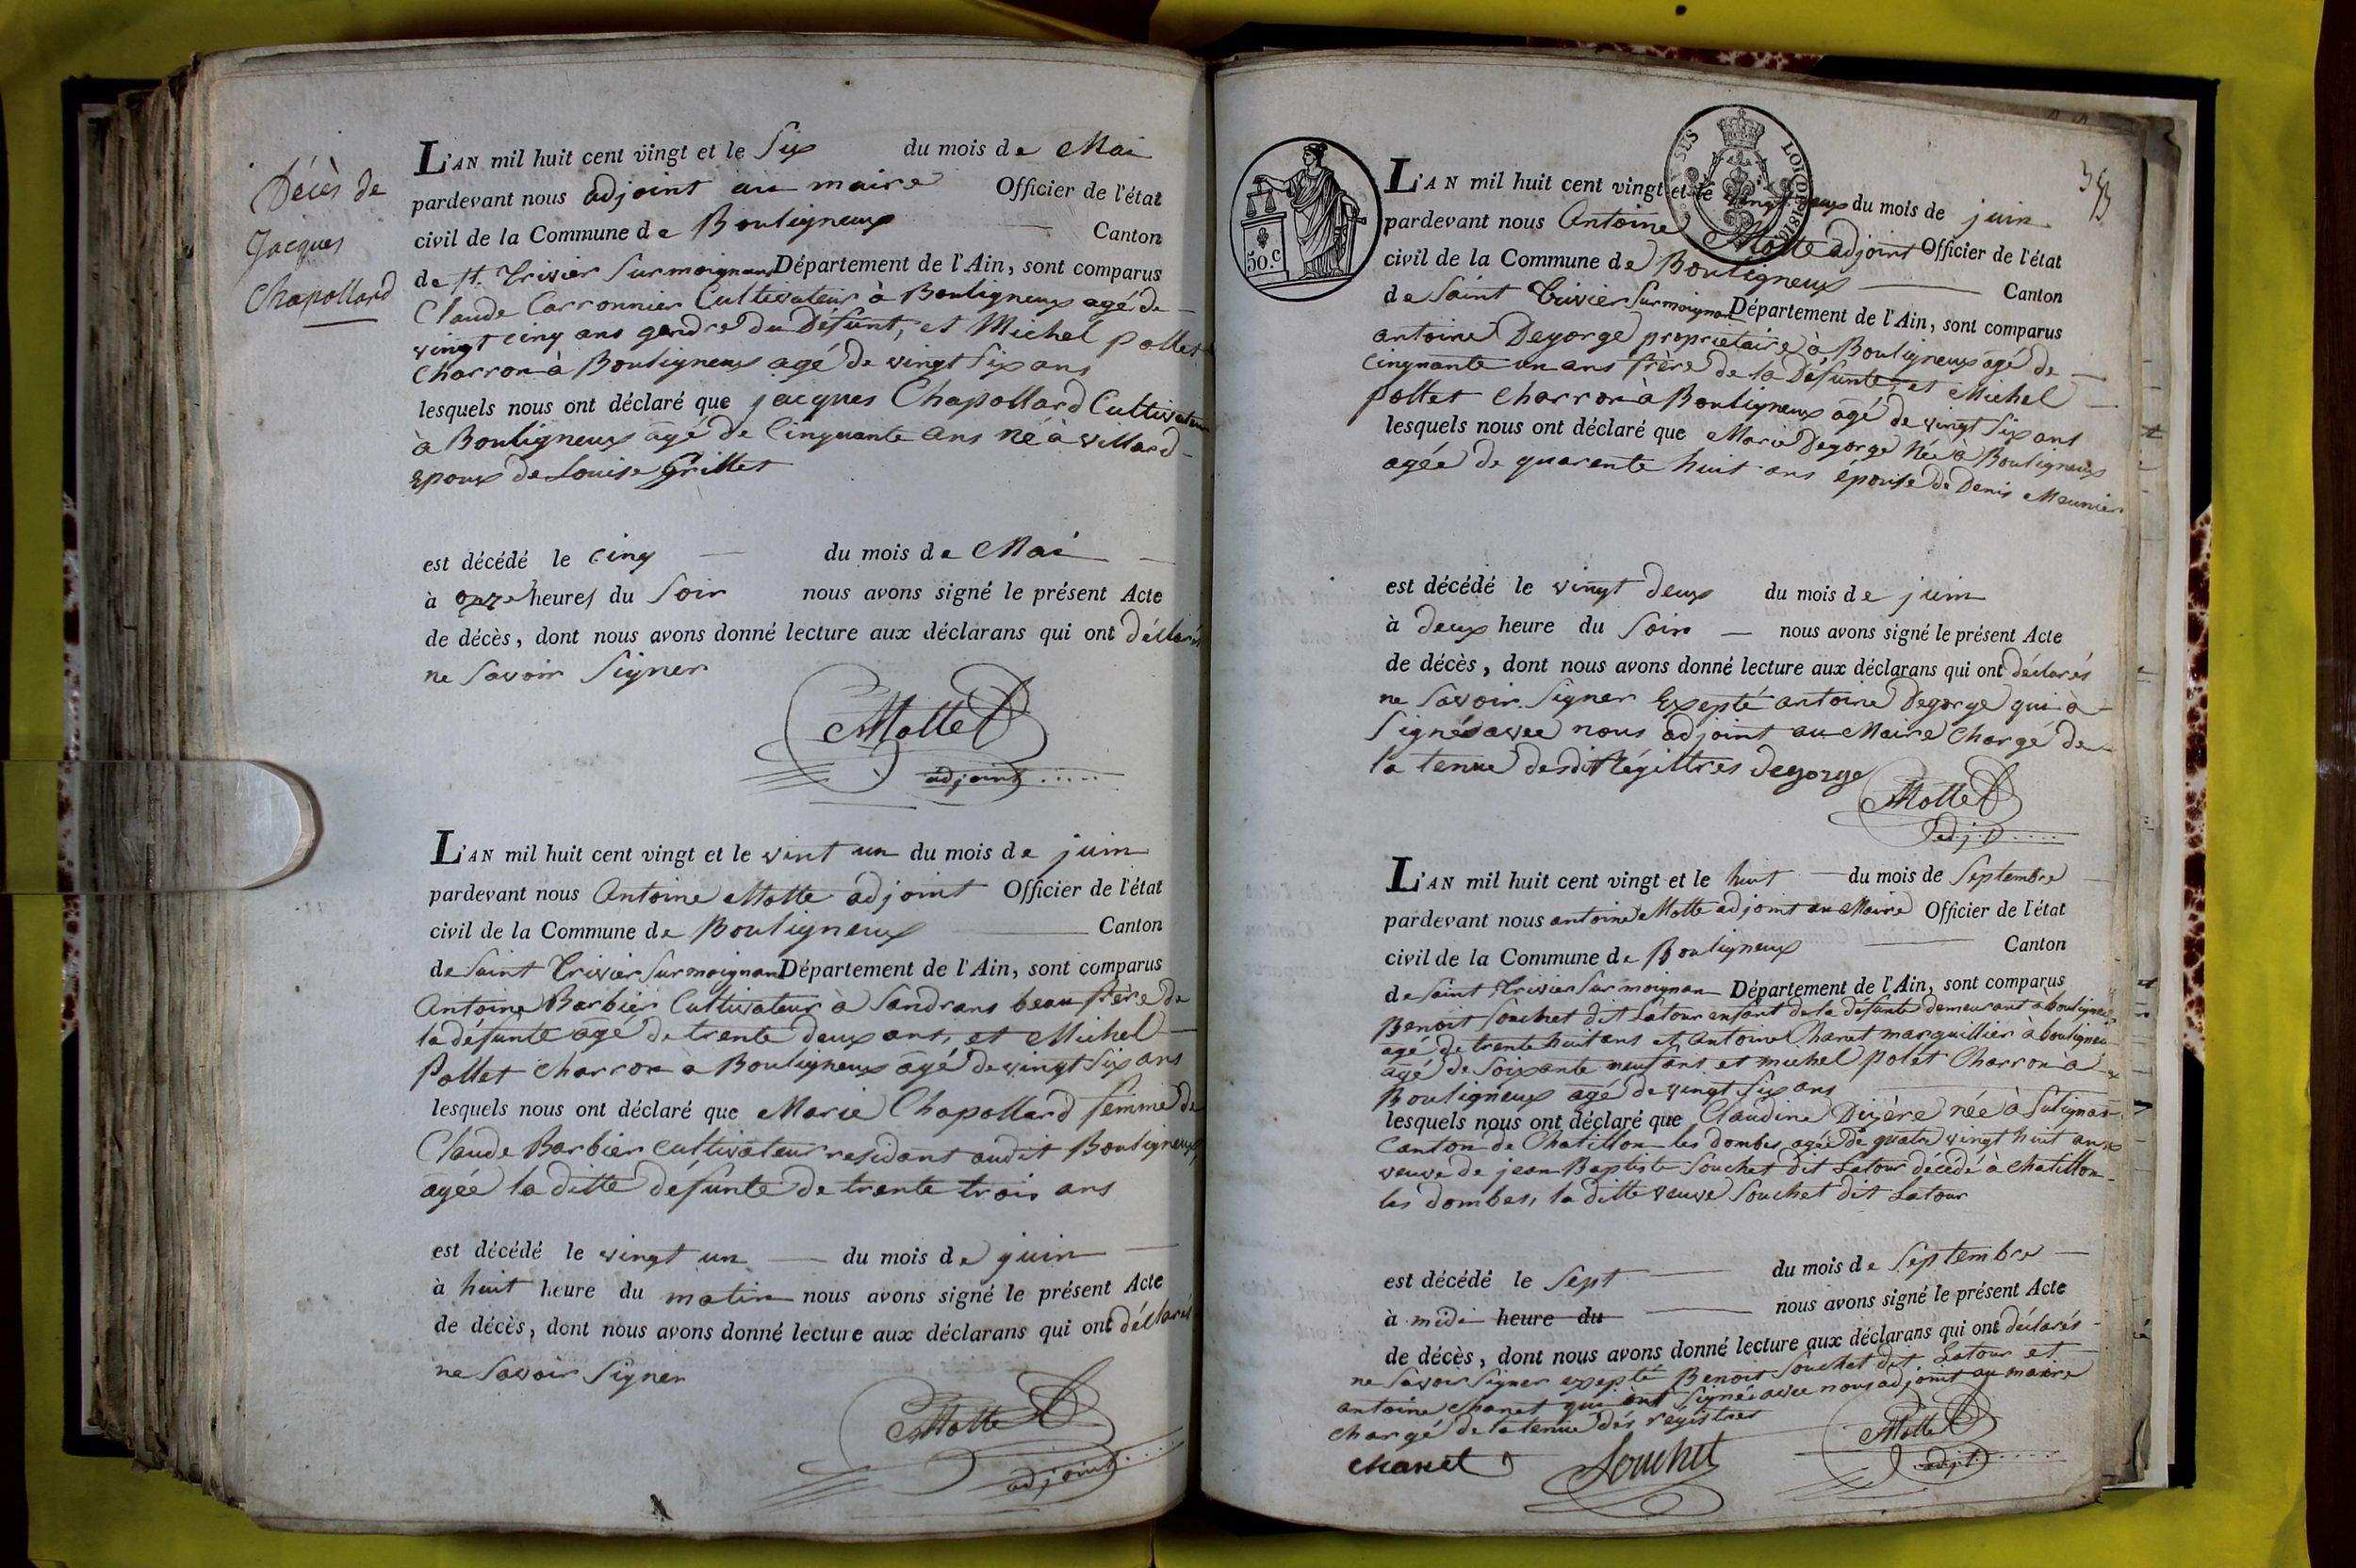 Décès de
Jacques
Chapollard
L'AN mil huit cent vingt et le Six du mois de Mai
pardevant nous adjoint au maire Officier de l'état
civil de la Commune de Bouligneux Canton
de St. Trivier Surmoignans Département de l'Ain, sont comparus
Claude Carronnier Cultivateur à Bouligneux agé de
vingt cinq ans gendre du Défunt, et Michel Pollet
Charron à Bouligneux agé de vingt Six ans
lesquels nous ont déclaré que jacques Chapollard Cultivateur
à Bouligneux agé de Cinquante ans né à villard
Epoux de Louise Grillet
est décédé le cinq du mois de Mai
à onze heures du Soir nous avons signé le présent Acte
de décès, dont nous avons donné lecture aux déclarans qui ont déclarés
ne Savoir Signer
Motte
adjoint
L'AN mil huit cent vingt et le vint un du mois de juin
pardevant nous Antoine Motte adjoint Officier de l'état
civil de la Commune de Bouligneux Canton
de Saint Trivier Surmoignan Département de l'Ain, sont comparus
Antoine Barbier Cultivateur à Sandrans beau frère de
la défunte agé de trente deux ans, et Michel
Pollet charron à Bouligneux agé de vingt Six ans
lesquels nous ont déclaré que Marie Chapollard femme de
Claude Barbier cultivateur residant audit Bouligneux,
agée la ditte défunte de trente trois ans
est décédé le vingt un du mois de juin
à huit heure du matin nous avons signé le présent Acte
de décès, dont nous avons donné lecture aux déclarans qui ont déclarés
ne Savoir Signer
Motte
adjoint
50.C
L'AN mil huit cent vingt et le vingt deux du mois de juin
pardevant nous Antoine Motte adjoint Officier de l'état
civil de la Commune de Bouligneux Canton
de Saint Trivier Surmoignan Département de l'Ain, sont comparus
antoine Degorge proprietaire à Bouligneux agé de
Cinquante un ans frère de la Défunte, et Michel
pollet charron à Bouligneux agé de vingt Six ans
lesquels nous ont déclaré que Marie Degorge Née à Bouligneux
agée de quarente huit ans épouse de Denis Meunier
est décédé le vingt deux du mois de juin
à deux heure du Soir nous avons signé le présent Acte
de décès, dont nous avons donné lecture aux déclarans qui ont déclarés
ne Savoir Signer Exepté antoine Degorge qui à
Signé avec nous adjoint au Maire Chargé de
la tenue desdit Régittres Degorge
Motte
adj.
L'AN mil huit cent vingt et le huit du mois de Septembre
pardevant nous antoine Motte adjoint au Maire Officier de l'état
civil de la Commune de Bouligneux Canton
de Saint Trivier Sur moignan Département de l'Ain, sont comparus
Benoit Souchet dit Latour enfant de la défunte demeurant à bouligneux
agé de trente huit ans et antoine Chanet marguillier à bouligneux
agé de Soixante neuf ans et michel polet Charron à
Bouligneux agé de vingt Six ans
lesquels nous ont déclaré que Claudine Dizère née à Sulignat
Canton de Chatillon les dombes agée de quatre vingt huit ans
veuve de jean Baptiste Souchet dit Latour décédé à Chatillon
les dombes, la ditte veuve Souchet dit Latour
est décédé le Sept du mois de Septembre
à midi heure du nous avons signé le présent Acte
de décès, dont nous avons donné lecture aux déclarans qui ont déclarés
ne Savoir Signer exepté Benoit Souchet dit Latour et
antoine Chanet qui ont Signés avec nous adjoint au maire
Chargé de la tenue des registres
Chanet Souchet Motte
adjt